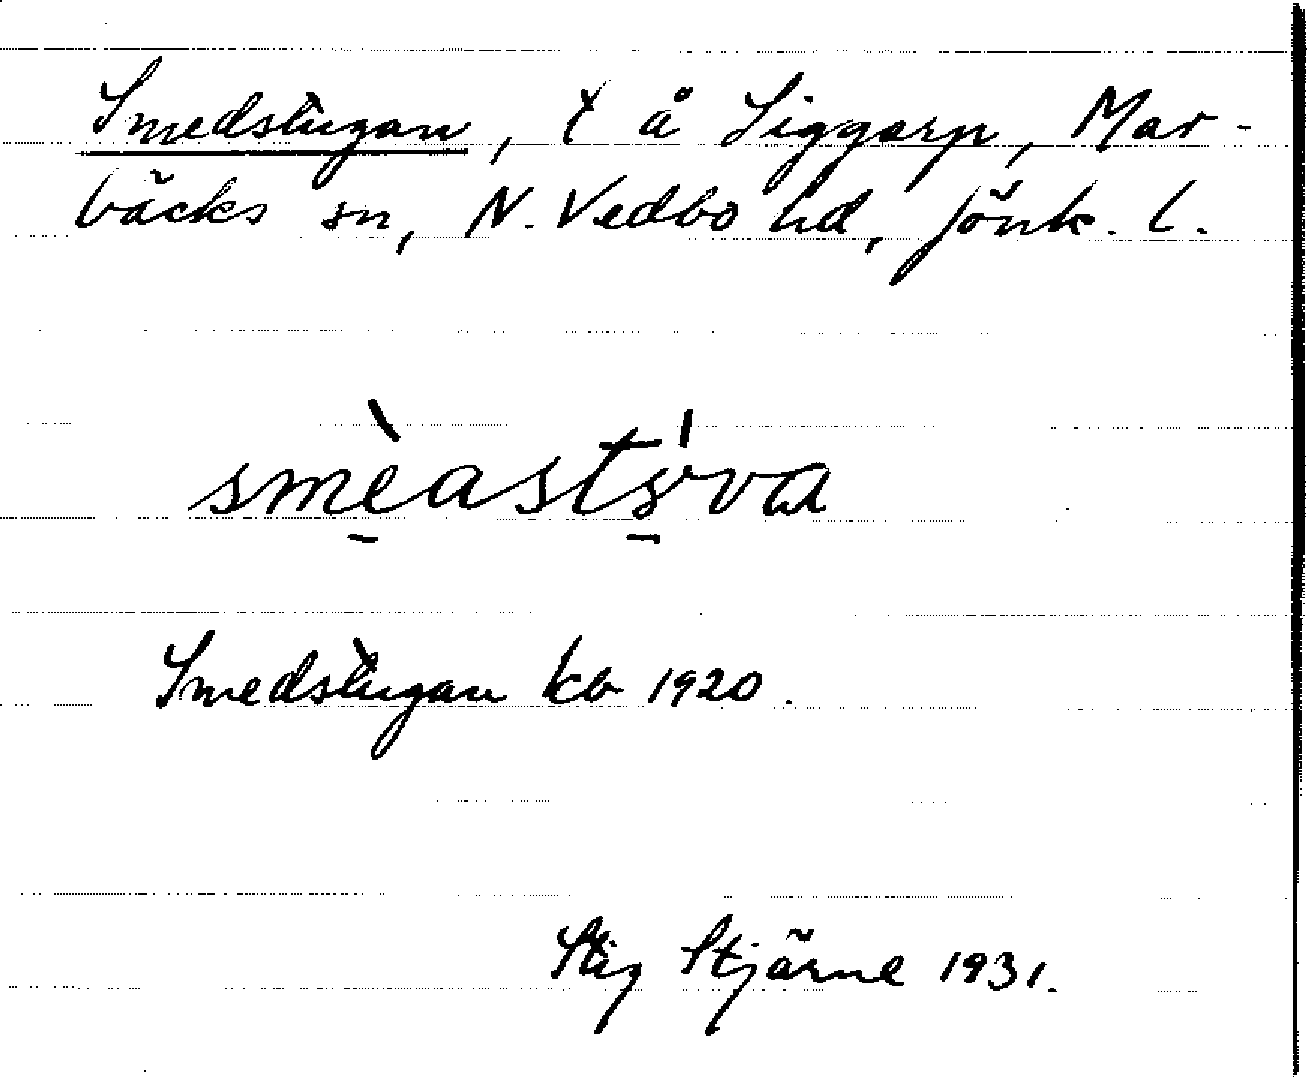 Smedstugan, t å Siggarp, Mar-
bäcks sn, N. Vedbo hd, Jönk. l.
smèast
Smedstugan kb 1920.
Stig Stjärne 1931.